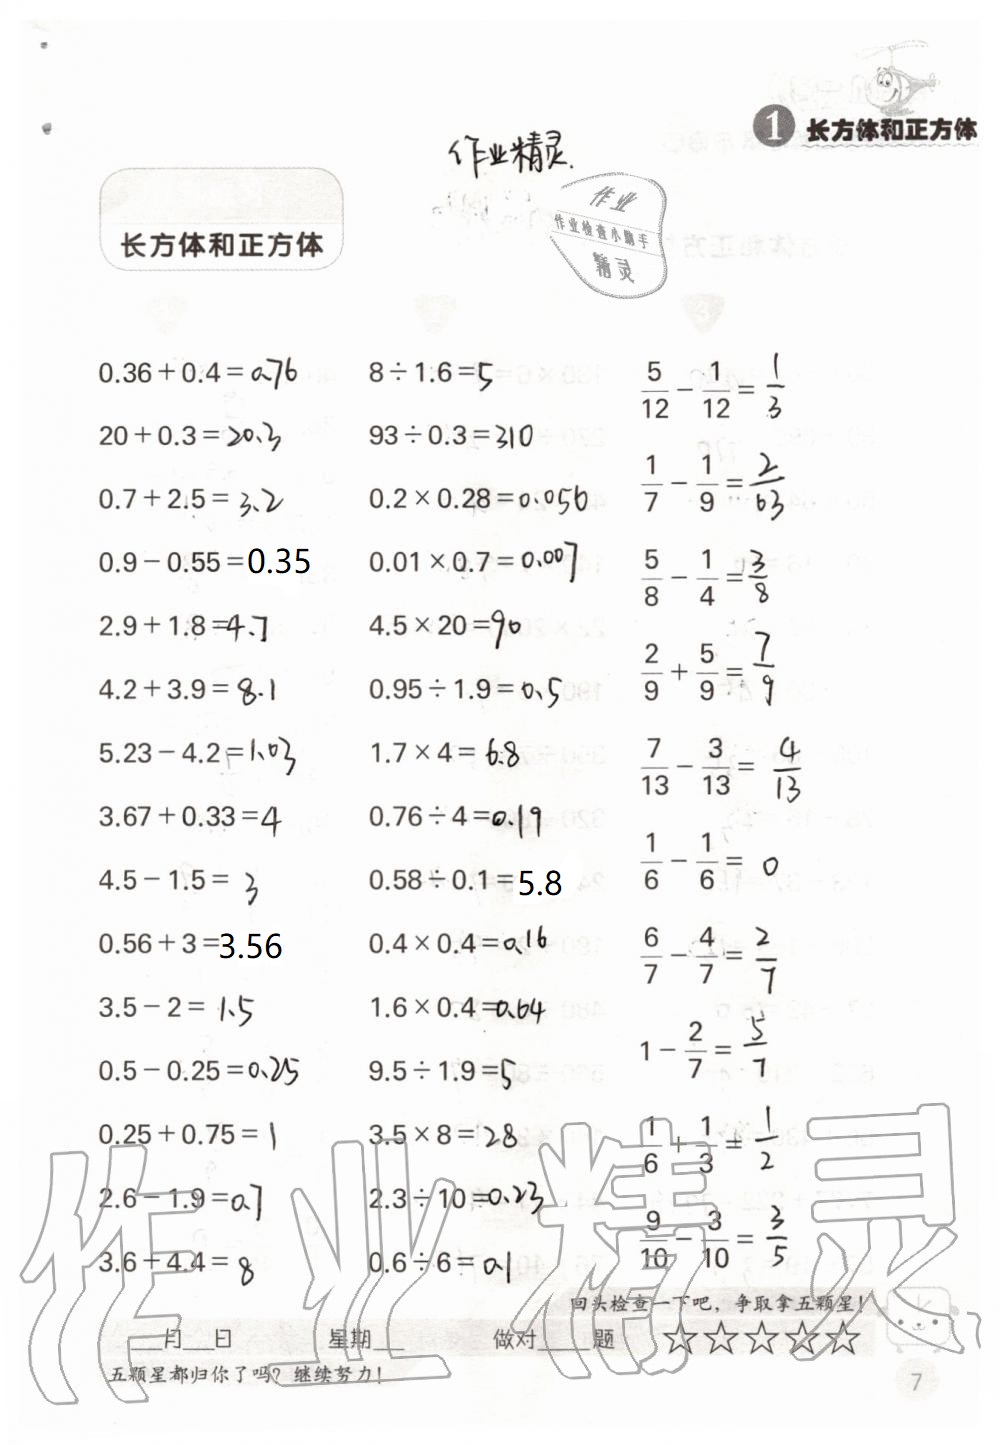 1 长方体和正方体
作业精灵
作业
作业检查小助手
精灵
长方体和正方体
0.36+0.4=0.76
20+0.3=20.3
0.7+2.5=3.2
0.9-0.55=0.35
2.9+1.8=4.7
4.2+3.9=8.1
5.23-4.2=1.03
3.67+0.33=4
4.5-1.5=3
0.56+3=3.56
3.5-2=1.5
0.5-0.25=0.25
0.25+0.75=1
2.6-1.9=0.7
3.6+4.4=8
8÷1.6=5
93÷0.3=310
0.2×0.28=0.056
0.01×0.7=0.007
4.5×20=90
0.95÷1.9=0.5
1.7×4=6.8
0.76÷4=0.19
0.58÷0.1=5.8
0.4×0.4=0.16
1.6×0.4=0.64
9.5÷1.9=5
3.5×8=28
2.3÷10=0.23
0.6÷6=0.1
5/12-1/12=1/3
1/7-1/9=2/63
5/8-1/4=3/8
2/9+5/9=7/9
7/13-3/13=4/13
1/6-1/6=0
6/7-4/7=2/7
1-2/7=5/7
1/6+1/3=1/2
9/10-3/10=3/5
作业精灵
回头检查一下吧，争取拿五颗星！
月 日 星期 做对 题 ☆☆☆☆☆
五颗星都归你了吗？继续努力！
7